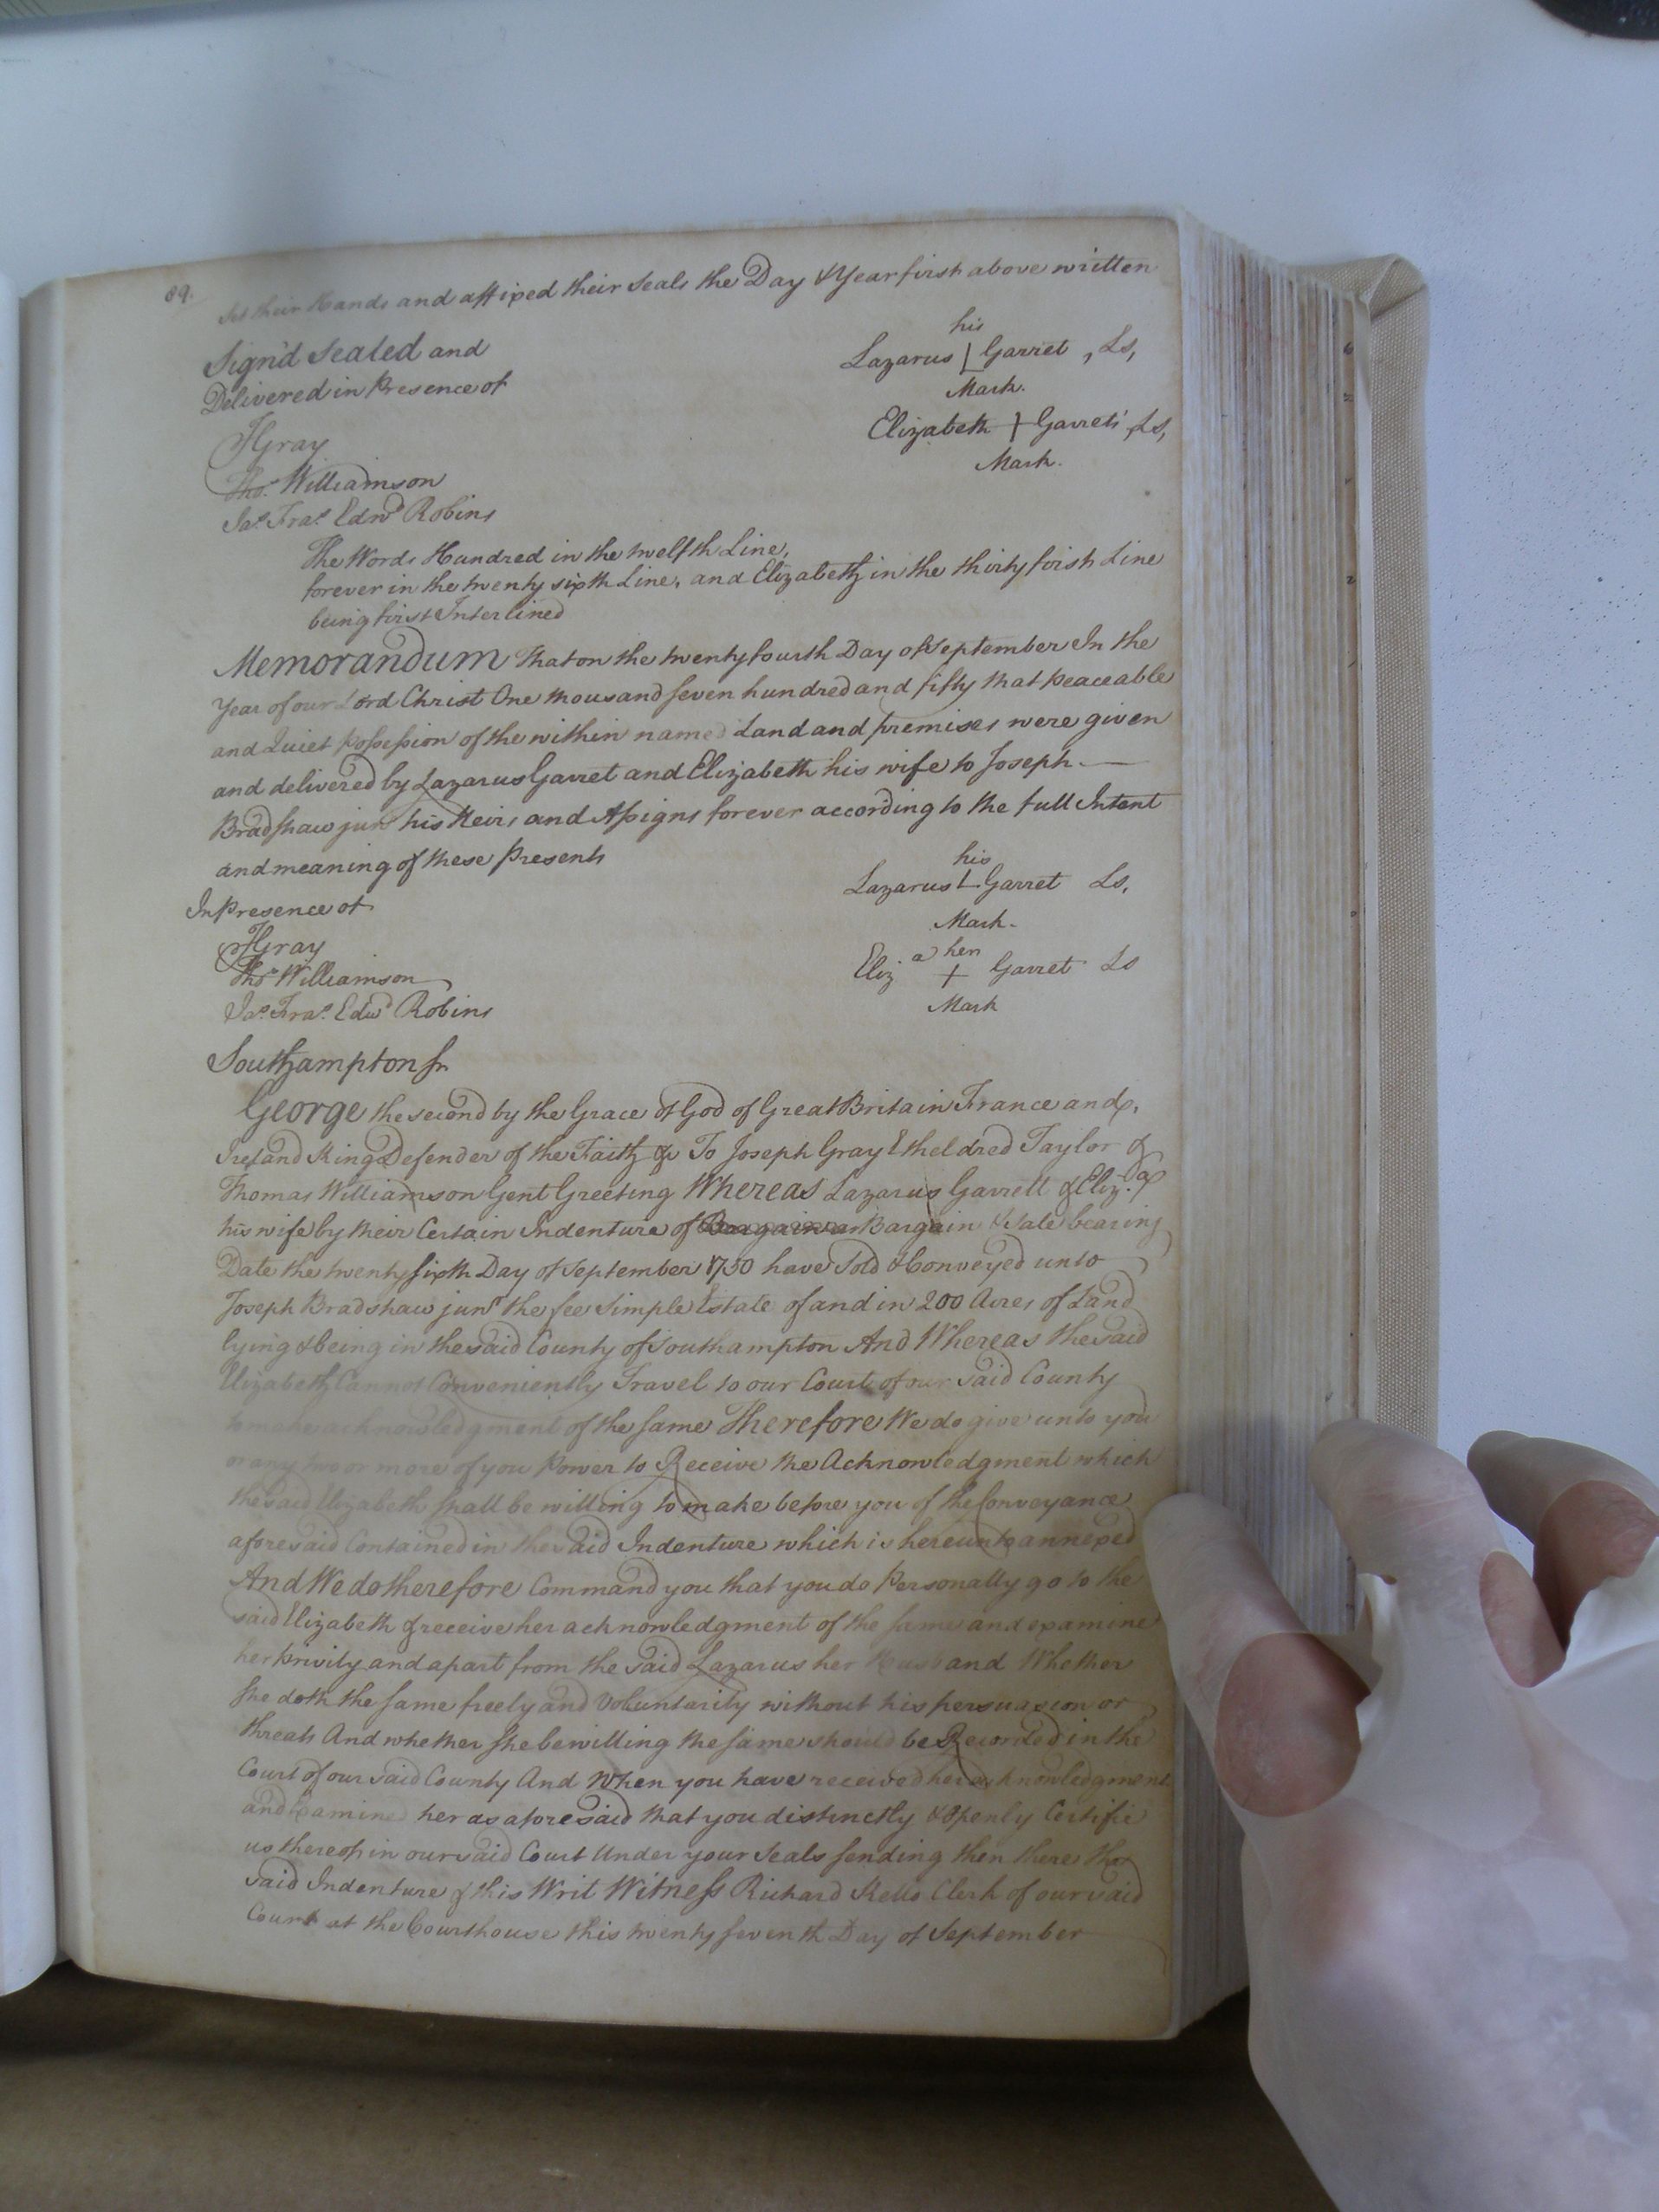 89.
set their Hands and affixed their Seals the Day & Year first above written
Sign'd Sealed and
Delivered in Presence of
JGray
Thos. Williamson
Jas. Fras. Edwd Robins
his
Lazarus L Garret , Ls,
Mark.
Elizabeth + Garret Ls,
Mark.
The Words Hundred in the twelfth Line,
forever in the twenty sixth Line, and Elizabeth in the thirty first Line
being first Interlined
Memorandum That on the twenty fourth Day of September In the
Year of our Lord Christ One thousand seven hundred and fifty that peaceable
and Quiet Possession of the within named Land and premises were given
and delivered by Lazarus Garret and Elizabeth his wife to Joseph —
Bradshaw junr his Heirs and Assigns forever according to the full Intent
and meaning of these Presents
In Presence of
JGray
Thos Williamson
Jas. Fras. Edwd Robins
his
Lazarus L Garret Ls,
Mark.
her
Eliza + Garret Ls
Mark
Southampton ss
George the second by the Grace of God of Great Britain France and
Ireland King Defender of the Faith &c To Joseph Gray Etheldred Taylor &
Thomas Williamson Gent Greeting Whereas Lazarus Garrett & Eliza.
his wife by their Certain Indenture of Bargain & Sale bearing
Date the twenty sixth Day of September 1750 have Sold & Conveyed unto
Joseph Bradshaw junr the fee Simple Estate of and in 200 Acres of Land
lying & being in the said County of Southampton And Whereas the said
Elizabeth Cannot Conveniently Travel to our Court of our said County
to make acknowledgment of the same Therefore We do give unto you
or any two or more of you Power to Receive the Acknowledgment which
the said Elizabeth shall be willing to make before you of the Conveyance
aforesaid Contained in the said Indenture which is hereunto annexed
And We do therefore Command you that you do Personally go to the
said Elizabeth & receive her acknowledgment of the same and examine
her privily and apart from the said Lazarus her Husband Whether
she doth the same freely and Voluntarily without his persuasion or
threats And whether she be willing the same should be Recorded in the
Court of our said County And When you have received her acknowledgment
and Examined her as aforesaid that you distinctly & Openly Certifie
us thereof in our said Court Under your Seals sending then there the
said Indenture & this Writ Witness Richard Kello Clerk of our said
Court at the Courthouse this twenty seventh Day of September